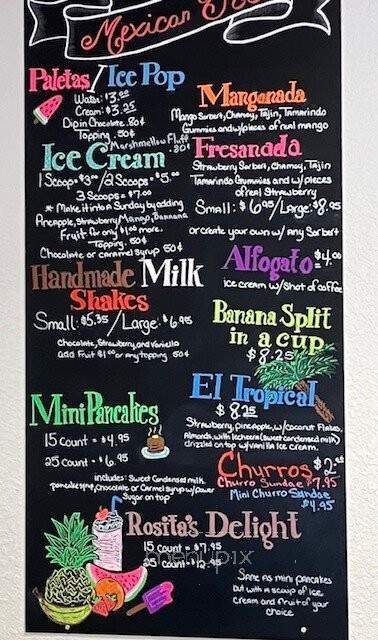 Mexican
Paletas/Ice Pop
Water: $3.00
Cream: $3.25
Dip in Chocolate .80¢
Topping .50¢
Marshmellow Fluff .80¢
Ice Cream
1 Scoop = $3.00/2 Scoops = $5.00
3 Scoops = $7.00
* Make it into a Sundae by adding
Pineapple, Strawberry, Mango, Banana
Fruit for only $1.00 more.
Topping: 50¢
Chocolate or caramel syrup 50¢
Handmade Milk
Shakes
Small: $5.35/Large: $6.95
Chocolate, Strawberry, and Vanilla
add Fruit $1.00 or any topping 50¢
Mini Pancakes
15 Count = $4.95
25 Count = $6.95
includes: Sweet Condensed milk,
pancake syrup, Chocolate or Caramel syrup w/power
Sugar on top
Mangonada
Mango Sorbert, Chamoy, Tajin, Tamarindo
Gummies and w/pieces of real mango
Fresanada
Strawberry Sorbert, Chamoy, Tajin
Tamarindo Gummies and w/pieces
of real Strawberry
Small: $6.95/Large: $8.95
or create your own w/ any Sorbert
Alfogato $4.00
ice cream w/shot of coffee
Banana Split
in a cup
$8.25
El Tropical
$8.25
Strawberry, pineapple, w/coconut Flakes,
Almonds, with lechera (sweet condensed milk)
drizzled on top w/vanilla ice cream.
Churros $2.50
Churro Sundae $7.95
Mini Churro Sundae
$4.95
Rosita's Delight
15 count = $7.95
25 count = $12.95
Same as mini pancakes
but with a scoop of ice
cream and fruit of your
choice
menupix